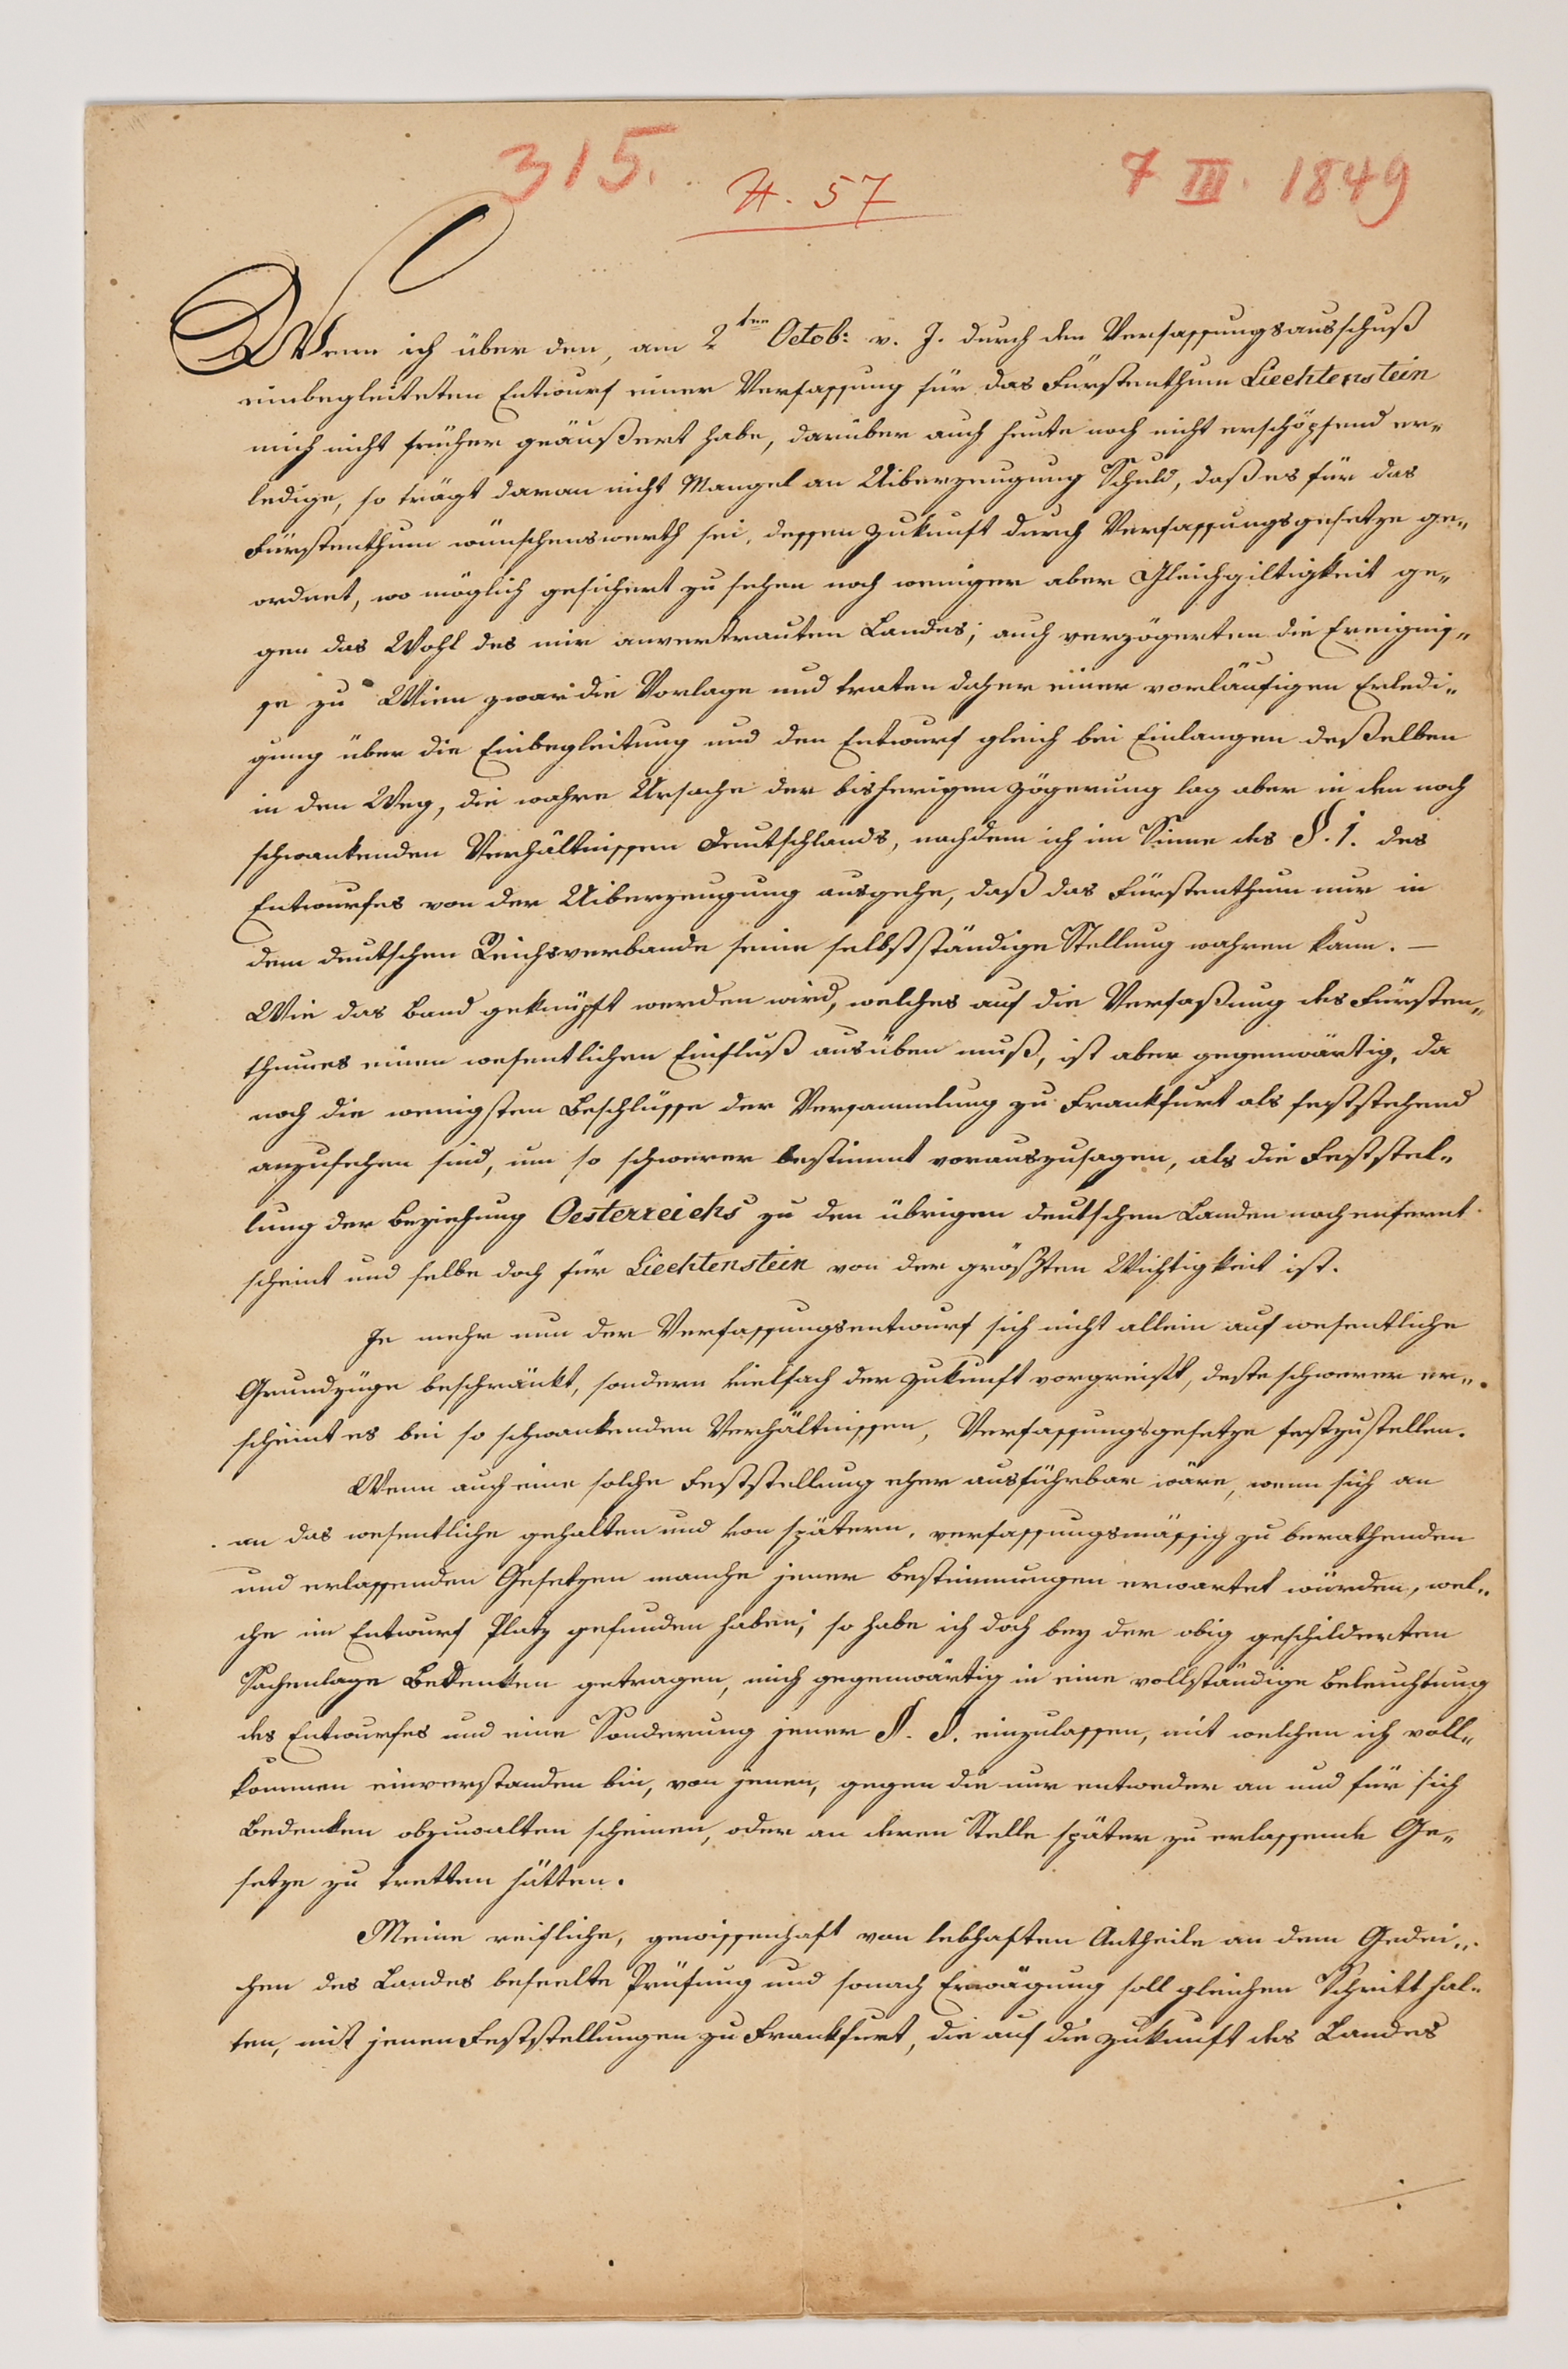 315.
H. 57
7 III. 1849
Wenn ich über den, am 2ten Octob: v. J. durch den Verfassungsausschuß
einbegleiteten Entwurf einer Verfassung für das Fürstenthum Liechtenstein
mich nicht früher geäußert habe, darüber auch heute noch nicht erschöpfend er„
ledige, so trägt daran nicht Mangel an Uiberzeugung Schuld, daß es für das
Fürstenthum wünschenswerth sei, dessen Zukunft durch Verfassungsgesetze ge„
ordnet, wo möglich gesichert zu sehen noch weniger aber Gleichgiltigkeit ge„
gen das Wohl des mir anvertrauten Landes; auch verzögerten die Ereignis„
se zu Wien zwar die Vorlage und traten daher einer vorläufigen Erledi„
gung über die Einbegleitung und den Entwurf gleich bei Einlangen deßelben
in den Weg, die wahre Ursache der bisherigen Zögerung lag aber in den noch
schwankenden Verhältnissen Deutschlands, nachdem ich im Sinne des §. 1. des
Entwurfes von der Uiberzeugung ausgehe, daß das Fürstenthum nur in
dem deutschen Reichsverbande seine selbstständige Stellung wahren kann. —
Wie das Band geknüpft werden wird, welches auf die Verfaßung des Fürsten„
thumes einen wesentlichen Einfluß ausüben muß, ist aber gegenwärtig, da
noch die wenigsten Beschlüsse der Versammlung zu Frankfurt als feststehend
anzusehen sind, um so schwerer bestimmt vorauszusagen, als die Feststel„
lung der Beziehung Oesterreichs zu den übrigen deutschen Landen noch enfernt
scheint und selbe doch für Liechtenstein von der größten Wichtigkeit ist.
Je mehr nun der Verfassungsentwurf sich nicht allein auf wesentliche
Grundzüge beschränkt, sondern vielfach der Zukunft vorgreift, deste schwerer er„
scheint es bei so schwankenden Verhältnissen, Verfassungsgesetze festzustellen.
Wenn auch eine solche Feststellung eher ausführbar wäre, wenn sich an
an das wesentliche gehalten und von spätern, verfassungsmässig zu berathenden
und erlassenden Gesetzen manche jener Bestimmungen erwartet würden, wel„
che im Entwurf Platz gefunden haben; so habe ich doch bey der obig geschilderten
Sachenlage Bedenken getragen, mich gegenwärtig in eine vollständige Beleuchtung
des Entwurfes und eine Sonderung jener §. §. einzulassen, mit welchen ich voll„
kommen einverstanden bin, von jenen, gegen die nur entweder an und für sich
Bedenken obzuwalten scheinen, oder an deren Stelle später zu erlassende Ge„
setze zu tretten hätten.
Meine reifliche, gewissenhaft von lebhaften Antheile an dem Gedei„
hen des Landes beseelte Prüfung und sonach Erwägung soll gleichen Schritt hal„
ten, mit jenen Feststellungen zu Frankfurt, die auf die Zukunft des Landes